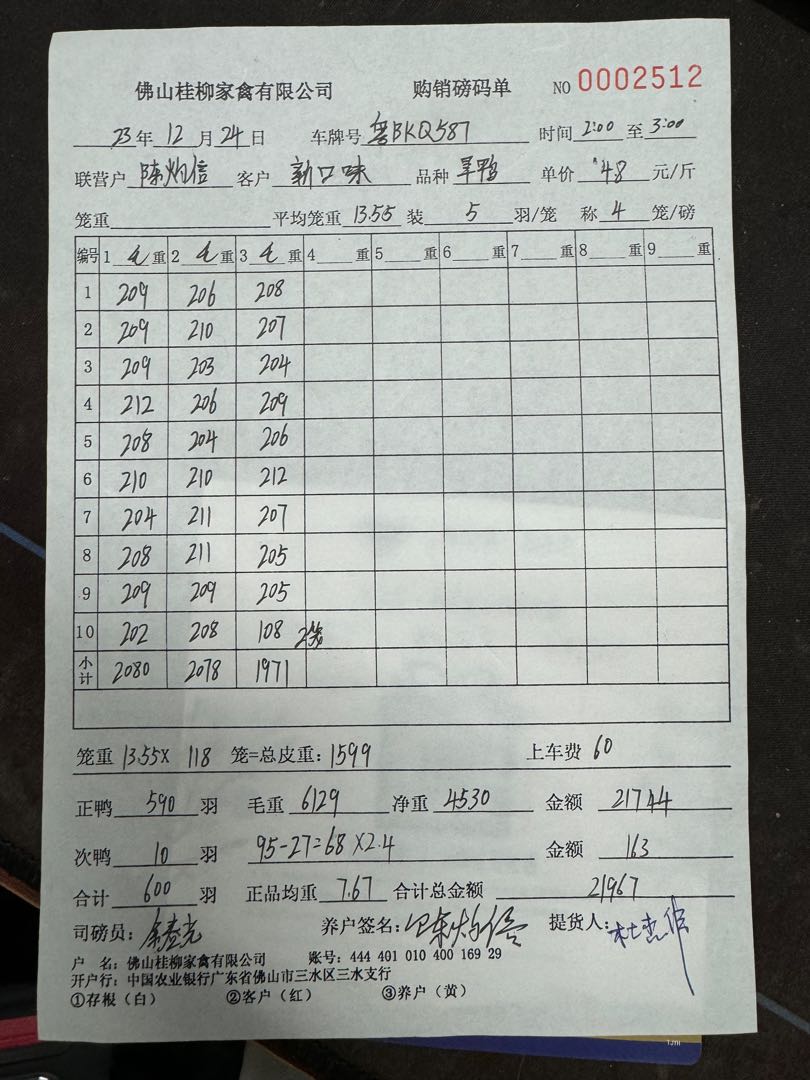 佛山桂柳家禽有限公司 购销磅码单 NO 0002512
23年12月24日 车牌号 粤BKQ587 时间 2:00 至 3:00
联营户 陈灿信 客户 新口味 品种 旱鸭 单价 4.8 元/斤
笼重 平均笼重 13.55 装 5 羽/笼 称 4 笼/磅
编号 1 毛重 2 毛重 3 毛重 4 重 5 重 6 重 7 重 8 重 9 重
1 209 206 208
2 209 210 207
3 209 203 204
4 212 206 209
5 208 204 206
6 210 210 212
7 204 211 207
8 208 211 205
9 209 209 205
10 202 208 108 2笼
小计 2080 2078 1971
笼重 13.55X 118 笼=总皮重: 1599 上车费 60
正鸭 590 羽 毛重 6129 净重 4530 金额 21744
次鸭 10 羽 95-27=68X2.4 金额 163
合计 600 羽 正品均重 7.67 合计总金额 21967
司磅员: 养户签名: 陈灿信 提货人:
户 名: 佛山桂柳家禽有限公司 账号: 444 401 010 400 169 29
开户行: 中国农业银行广东省佛山市三水区三水支行
①存根（白） ②客户（红） ③养户（黄）